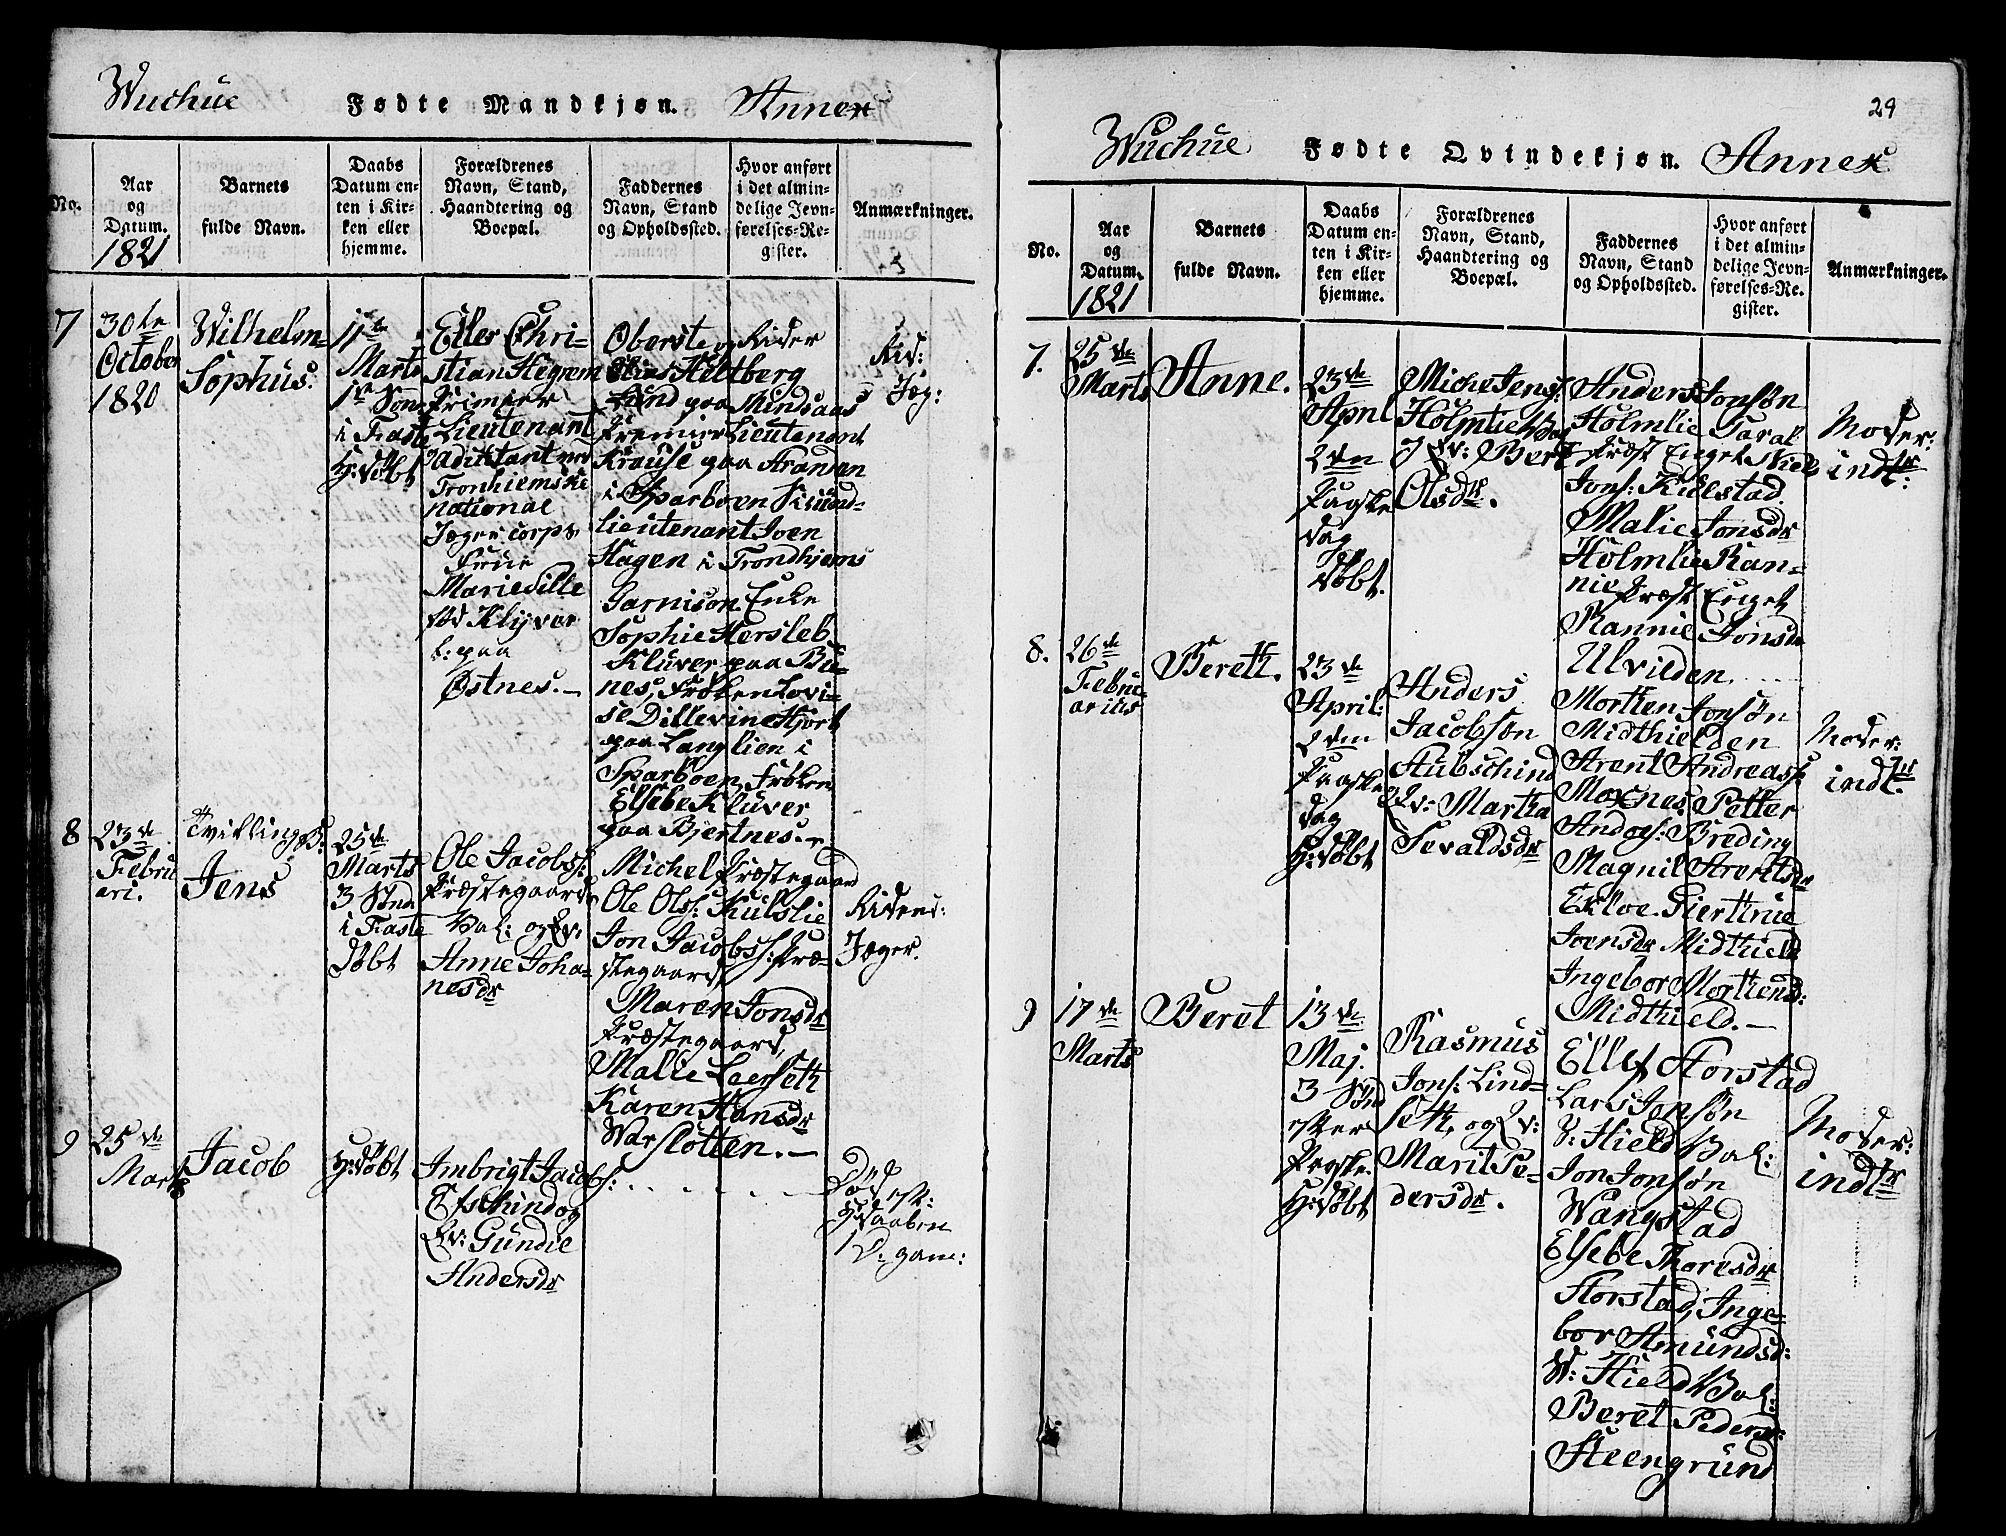 Wuchue Fødte Mandkjøn. Annex
No.
Aar
og
Datum.
1821
Barnets
fulde Navn.
Daabs
Datum en-
ten i Kir-
ken eller
hjemme.
Forældrenes
Navn, Stand,
Haandtering og
Boepæl.
Faddernes
Navn, Stand
og Opholdssted.
Hvor anført
i det almin-
delige Jevn-
førelses-Re-
gister.
Anmærkninger.
7
30te
October
1820
Wilhelm
Sophus.
11te
Marts
1te Søn
i Faste
H: døbt
Eller Chri-
stian Hegrem
Primier
Lieutenant
Adiktant ved
Tronhiemske
national
Jæger corps
Frue
Marie Sille
Klyver
b: paa
Østnes.
Oberste og Rider
Heltberg
paa Mindsaas
Premier Lieutenant
Krause paa Tranen
i Sparboen Secund-
lieutenant Joen
Hagen i Trondhjems
Garnison. Enke
Sophie Hersleb
Kluver paa By-
nes, Frøken Lovi-
se Dillevine Hjort
paa Langlien i
Sparboen, Frøken
Elsebe Kluver
paa Bjertnes.
Rid:
Jæg:
8
23de
Febru
ari.
Tvilling B:
Jens
25de
Marts
3 Sønd
i Faste
døbt
Ole Jacobs:
Præstegaards
Val: og Qv:
Anne Joha-
nesdr
Michel Præstegaard
Ole Ols: Kulslie
Jon Jacobs: Præ-
stegaard
Maren Jonsdr
Præstegaard,
Malie Leerseth
Karen Hansdr
Warslotten.
Ridend:
Jæger.
9
25de
Marts
Jacob
H: døbt
Imbrigt Jacobs:
Efschind og
Qv: Gundie
Andersdr
Død
eft:
H: daaben
1 D: gam:
29
Wuchue Fødte Qvindekjøn. Annex
No.
Aar
og
Datum.
1821
Barnets
fulde Navn.
Daabs
Datum en-
ten i Kir-
ken eller
hjemme.
Forældrenes
Navn, Stand,
Haandtering og
Boepæl.
Faddernes
Navn, Stand
og Opholdssted.
Hvor anført
i det almin-
delige Jevn-
førelses-Re-
gister.
Anmærkninger.
7.
25de
Marts
Anne.
23de
April
2den
Paaske
dag
døbt.
Miche Jens:
Holmlie Val
Qv: Beret
Olsdr.
Anders Jonsøn
Holmlie Taral
Præst Enget Niels
Jons: Killstad
Malie Jonsdr
Holmlie Ran-
nie Præst Enget
Rannie Jonsdr
Ulvilden
Moder:
indtr:
8.
26de
Febru-
arius
Bereth.
23de
April:
2den
Paaske
dag
H: døbt
Anders
Jacobsøn
Aubschind
Qv: Martha
Sevaldsdr
Morthen Jonsøn
Midthielden
Arent Andreass:
Moxnes Petter
Andos: Breding
Magnil Arentsdr
Ekloe. Giertrue
Joensdr Midthield
Ingebor Morthensd:
Midthield.
Moder:
indtr:
9
17de
Marts
Beret
13de
Maj.
3 Sønd
efter
Paaske.
H: døbt
Rasmus
Jons: Lind-
seth, og Qv:
Marit Pe-
dersdr.
Ellef Storstad
Lars Jonsøn
V: Hield Val:
Jon Jonsøn
Wangstad
Elsebe Thoresdr
Storstad, Inge-
bor Amundsd:
V: Hield Val:
Beret Pedersd:
Steengrund
Moder:
indtr